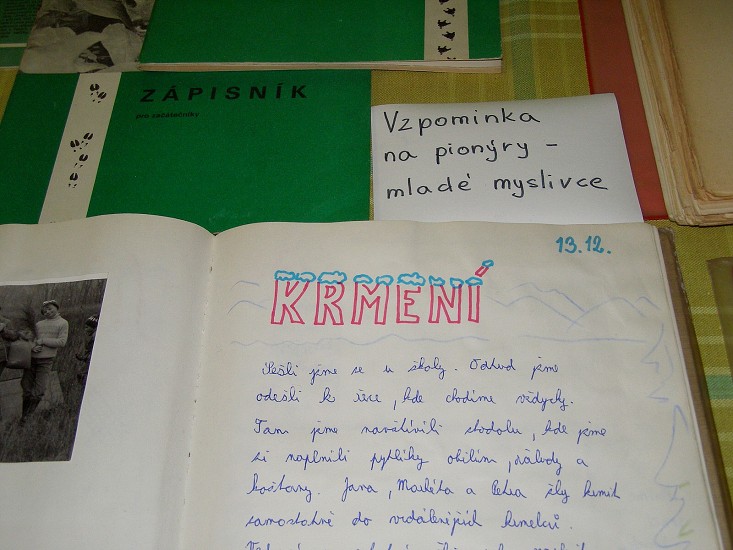 ZÁPISNÍK
pro začátečníky
Vzpomínka
na pionýry -
mladé myslivce
13.12.
KRMENÍ
Sešli jsme se u školy. Odtud jsme
odešli k řece, kde chodíme vždycky.
Tam jsme navštívili stodolu, kde jsme
si naplnili pytlíky obilím, žaludy a
kaštany. Jana, Markéta a Petra šly krmit
samostatně do vzdálenějších krmelců.